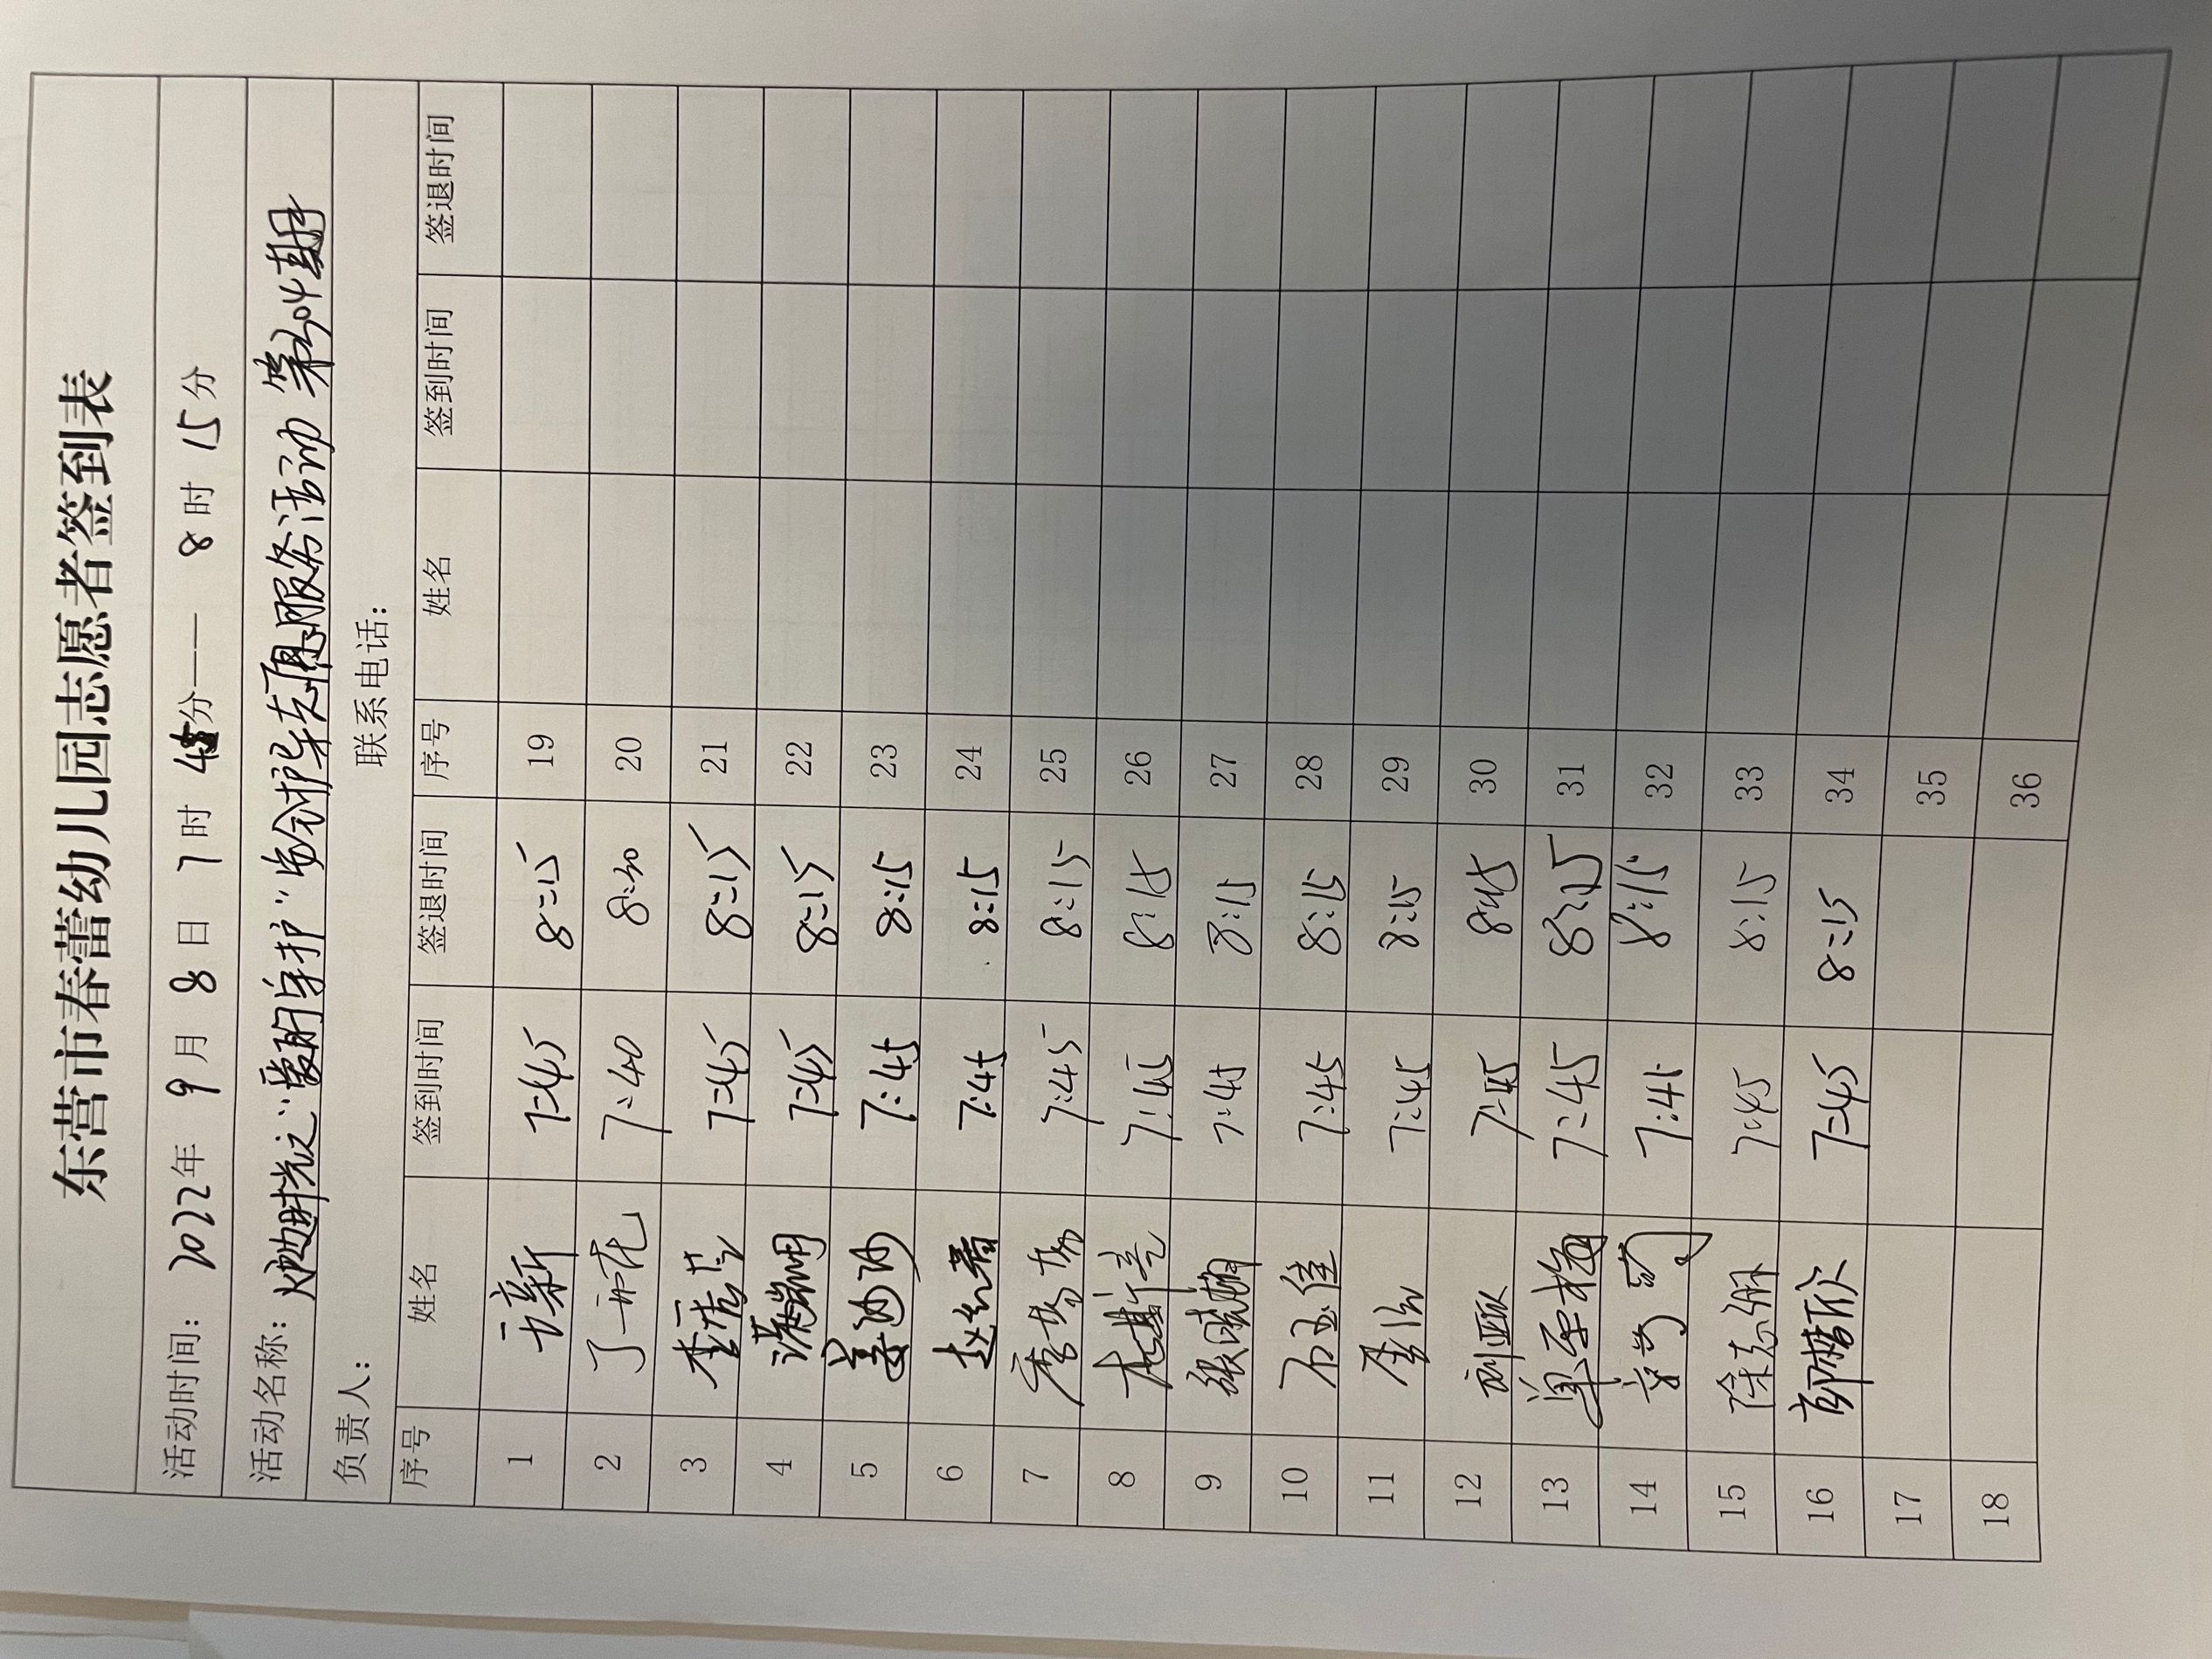 东营市春蕾幼儿园志愿者签到表
活动时间： 2022年 9 月 8 日 7 时 45分—— 8 时 15 分
活动名称： 之“爱的守护” 志愿服务活动 第304期
负责人： 联系电话：
序号 姓名 签到时间 签退时间 序号 姓名 签到时间 签退时间
1 新 7:45 8:15 19
2 7:40 8:30 20
3 李 7:45 8:15 21
4 7:45 8:15 22
5 姜沙沙 7:45 8:15 23
6 赵 7:45 8:15 24
7 7:45 8:15 25
8 7:45 8:15 26
9 张 7:45 8:15 27
10 石玉佳 7:45 8:15 28
11 李 7:45 8:15 29
12 刘亚 7:45 30
13 单 梅 7:45 31
14 7:45 8:15 32
15 徐 7:45 8:15 33
16 7:45 8:15 34
17 35
18 36